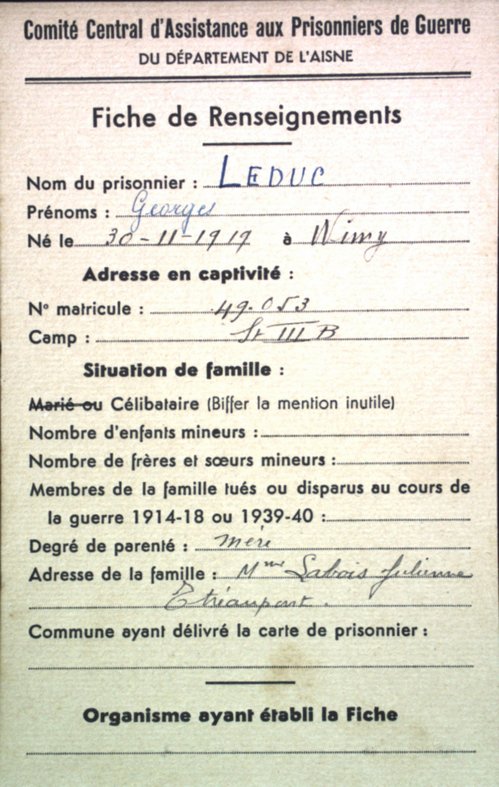 Comité Central d'Assistance aux Prisonniers de Guerre
DU DÉPARTEMENT DE L'AISNE
Fiche de Renseignements
Nom du prisonnier : LEDUC
Prénoms : Georges
Né le 30-11-1919 à Wimy
Adresse en captivité :
N° matricule : 49.053
Camp : St III B
Situation de famille :
Marié ou Célibataire (Biffer la mention inutile)
Nombre d'enfants mineurs :
Nombre de frères et sœurs mineurs :
Membres de la famille tués ou disparus au cours de
la guerre 1914-18 ou 1939-40 :
Degré de parenté : mère
Adresse de la famille : Mme Labois Julienne
Etréaupont.
Commune ayant délivré la carte de prisonnier :
Organisme ayant établi la Fiche